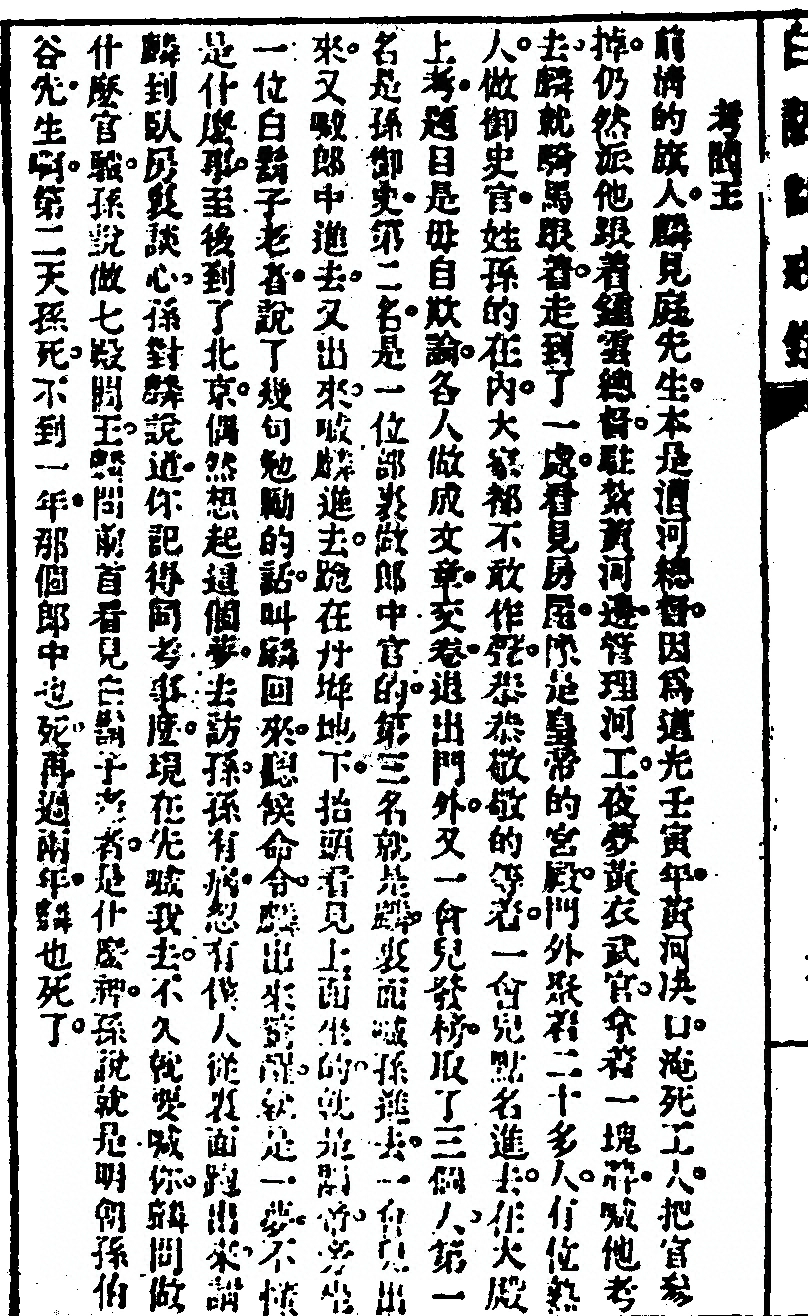 考閻王
前清的旗人麟見庭先生。本是漕河總督。因爲道光壬寅年。黃河决口。淹死工人。把官參
掉。仍然派他跟着鍾雲總督。駐紮黃河邊。管理河工。夜夢黃衣武官。拿着一塊牌。喊他考
去。麟就騎馬跟着。走到了一處。看見房屋。像是皇帝的宮殿。門外聚着二十多人。有位熟
人。做御史官。姓孫的在內。大家都不敢作聲。恭恭敬敬的等着。一會兒點名進去。在大殿
上考。題目是毋自欺論。各人做成文章。交卷。退出門外。又一會兒發榜。取了三個人。第一
名是孫御史。第二名。是一位部裏做郎中官的。第三名就是麟。裏面喊孫進去。一會兒出
來。又喊郎中進去。又出來。喊麟進去。跪在丹墀地下。抬頭看見上面坐的。就是關帝。旁坐
一位白鬍子老者。說了幾句勉勵的話。叫麟回來。聽候命令。麟出來。驚醒。就是一夢。不懂
是什麼事。至後到了北京。偶然想起這個夢。去訪孫。孫有病。忽有僕人從裏面跑出來。請
麟到臥房裏談心。孫對麟說道。你記得同考事麼。現在先喊我去。不久就要喊你。麟問做
什麼官職。孫說做七殿閻王。麟問前首看見白鬍子老者。是什麼神。孫說就是明朝孫伯
谷先生啊。第二天孫死。不到一年。那個郎中也死。再過兩年。麟也死了。